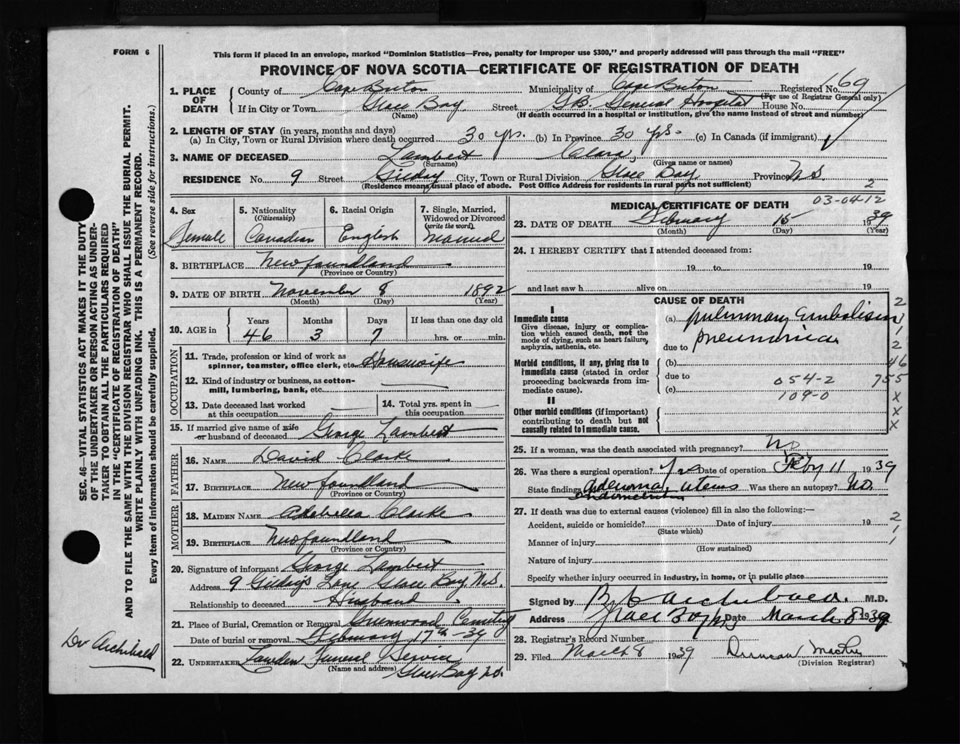 FORM 6
This form if placed in an envelope, marked "Dominion Statistics—Free, penalty for improper use $300," and properly addressed will pass through the mail "FREE"
PROVINCE OF NOVA SCOTIA—CERTIFICATE OF REGISTRATION OF DEATH
1. PLACE OF DEATH County of Cape Breton Municipality of Cape Breton Registered No. 169
(For use of Registrar General only)
If in City or Town Glace Bay Street G.B. General Hospital House No.
(Name) (If death occurred in a hospital or institution, give the name instead of street and number)
2. LENGTH OF STAY (in years, months and days)
(a) In City, Town or Rural Division where death occurred 30 yrs. (b) In Province 30 yrs. (c) In Canada (if immigrant)
3. NAME OF DECEASED Lambert Clara
(Surname) (Given name or names)
RESIDENCE No. 9 Street Gilday City, Town or Rural Division Glace Bay Province N.S.
(Residence means usual place of abode. Post Office Address for residents in rural parts not sufficient) 2
03-04-12
4. Sex Female
5. Nationality (Citizenship) Canadian
6. Racial Origin English
7. Single, Married, Widowed or Divorced (write the word) Married
8. BIRTHPLACE Newfoundland
(Province or Country)
9. DATE OF BIRTH November 8 1892
(Month) (Day) (Year)
10. AGE in Years Months Days If less than one day old
46 3 7 hrs. or min.
OCCUPATION
11. Trade, profession or kind of work as spinner, teamster, office clerk, etc. Housewife
12. Kind of industry or business, as cotton-mill, lumbering, bank, etc.
13. Date deceased last worked at this occupation
14. Total yrs. spent in this occupation
15. If married give name of wife or husband of deceased George Lambert
FATHER
16. Name David Clarke
17. Birthplace Newfoundland
(Province or Country)
MOTHER
18. Maiden Name Clarke
19. Birthplace Newfoundland
(Province or Country)
20. Signature of informant George Lambert
Address 9 Gilday's Lane Glace Bay, N.S.
Relationship to deceased Husband
21. Place of Burial, Cremation or Removal Greenwood Cemetery
Date of burial or removal February 17th-39
22. UNDERTAKER Funeral Service
(Name and address) Glace Bay N.S.
MEDICAL CERTIFICATE OF DEATH
23. DATE OF DEATH February 15 1939
(Month) (Day) (Year)
24. I HEREBY CERTIFY that I attended deceased from:
19 to 19
and last saw h alive on 19
CAUSE OF DEATH
I
Immediate cause (a) Pulmonary Embolism
Give disease, injury or complication which caused death, not the mode of dying, such as heart failure, asphyxia, asthenia, etc.
due to Pneumonia
Morbid conditions, if any, giving rise to immediate cause (stated in order proceeding backwards from immediate cause).
(b)
due to 054-2
(c) 109-0
II
Other morbid conditions (if important) contributing to death but not causally related to immediate cause.
2
1
2
46
755
x
x
x
25. If a woman, was the death associated with pregnancy? No
26. Was there a surgical operation? Yes Date of operation Feby 11 1939
State findings uterus Was there an autopsy? No.
27. If death was due to external causes (violence) fill in also the following:—
Accident, suicide or homicide? Date of injury 19
(State which)
Manner of injury
(How sustained)
Nature of injury
Specify whether injury occurred in industry, in home, or in public place
2
1
1
Signed by Archibald M.D.
Address Glace Bay NS Date March 8 1939
28. Registrar's Record Number
29. Filed March 8 1939 Duncan
(Division Registrar)
SEC. 46—VITAL STATISTICS ACT MAKES IT THE DUTY OF THE UNDERTAKER OR PERSON ACTING AS UNDERTAKER TO OBTAIN ALL THE PARTICULARS REQUIRED IN THE "CERTIFICATE OF REGISTRATION OF DEATH" AND TO FILE THE SAME WITH THE DIVISION REGISTRAR WHO SHALL ISSUE THE BURIAL PERMIT.
WRITE PLAINLY WITH UNFADING INK. THIS IS A PERMANENT RECORD.
Every item of information should be carefully supplied. (See reverse side for instructions.)
Dr Archibald